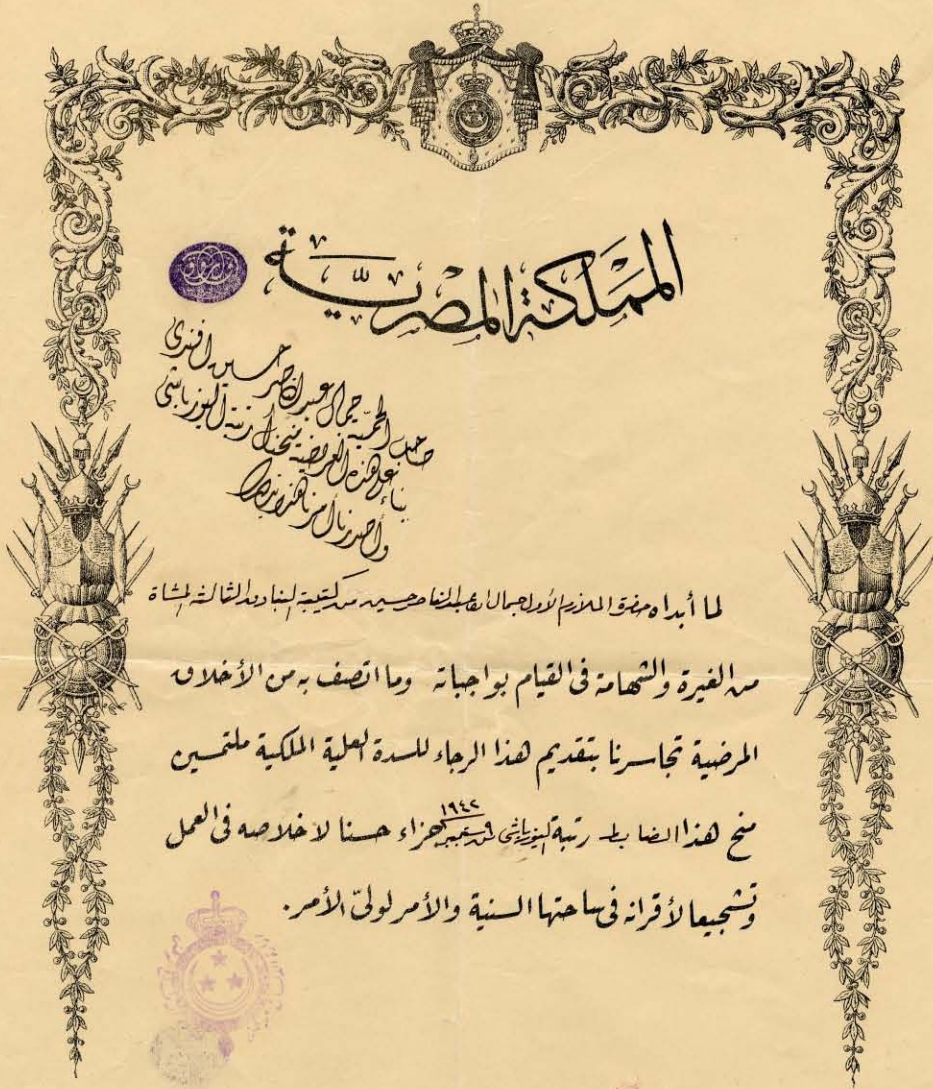 المملكة المصرية
صاحب الحمية جمال عبد الناصر حسين افندى
بناء على هذه العريضة منحناك رتبة اليوزباشى
وأصدرنا أمرنا هذا بذلك
لما أبداه حضرة الملازم الأول جمال عبد الناصر حسين من كتيبة البنادق الثالثة المشاة
من الغيرة والشهامة فى القيام بواجباته وما اتصف به من الأخلاق
المرضية تجاسرنا بتقديم هذا الرجاء للسدة العلية الملكية ملتمسين
منح هذا الضابط رتبة اليوزباشى ١٩٤٢ جزاء حسنا لاخلاصه فى العمل
وتشجيعا لأقرانه فى ساحتها السنية والأمر لولىّ الأمر.